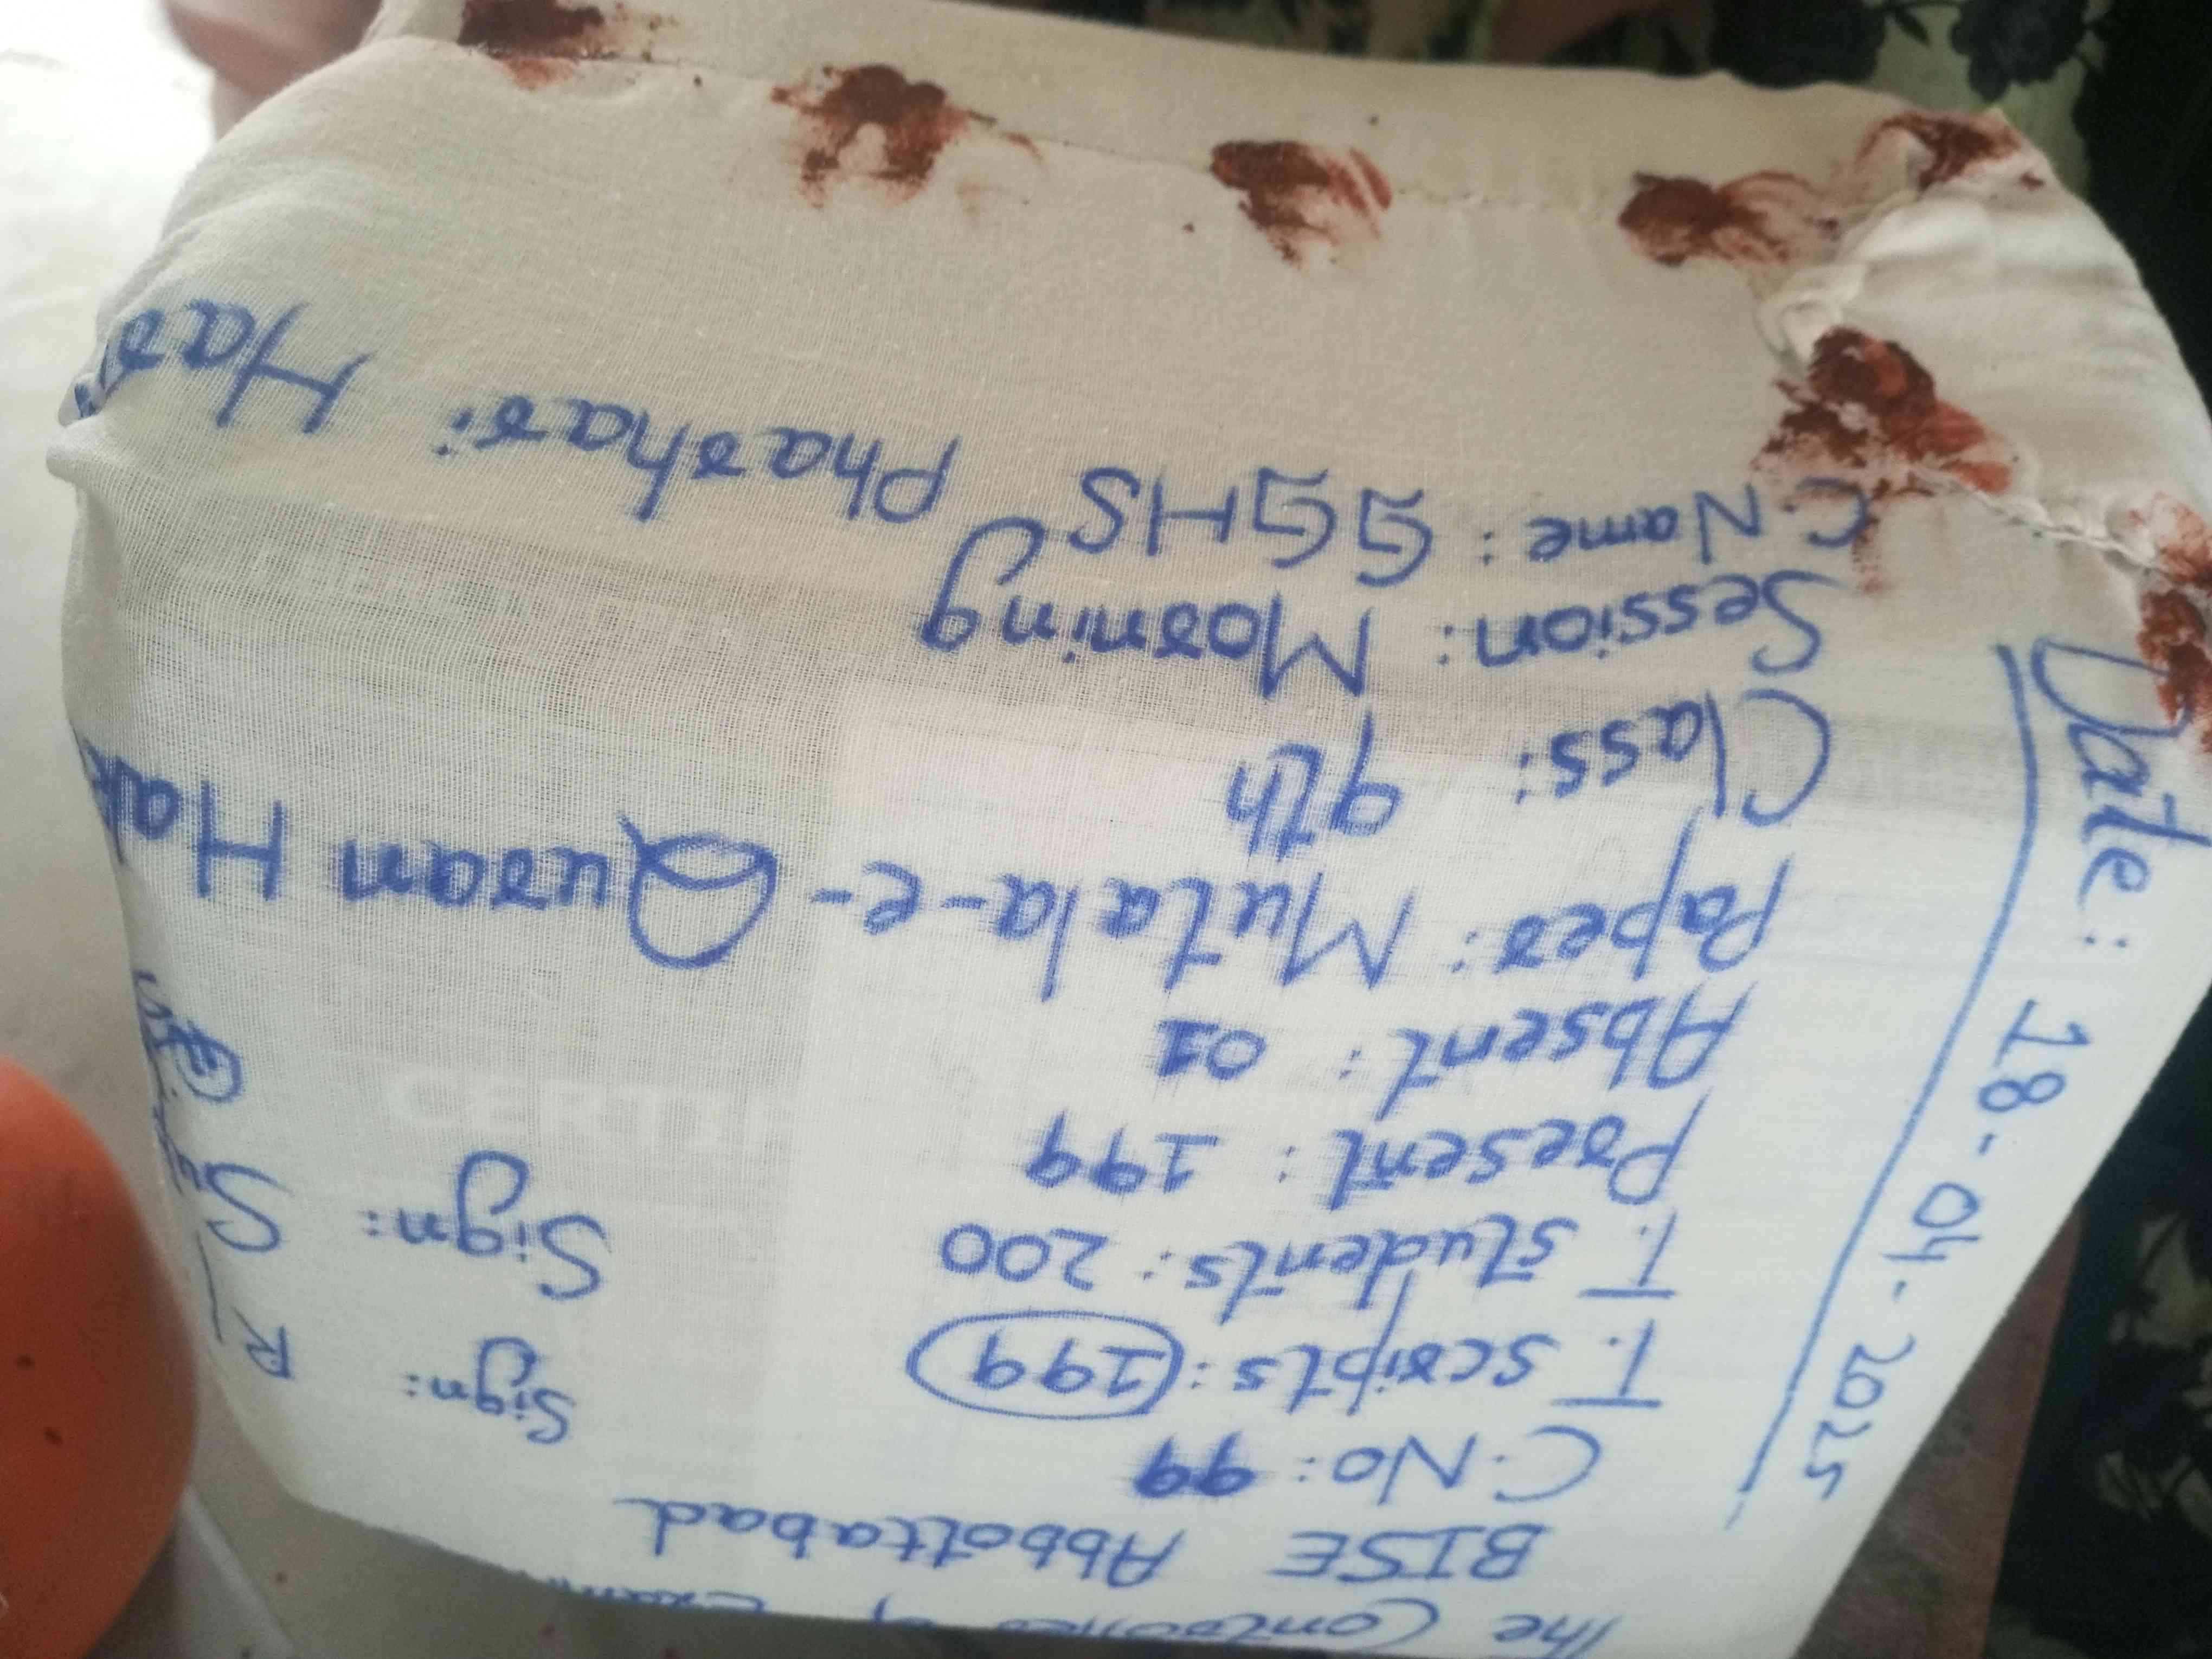 The Controller of Exami
BISE Abbottabad
C.No: 99
T. scripts: 199
Sign:
T. students: 200
Sign:
Present: 199
Absent: 01
Paper: Mutala-e-Quran Hak
Class: 9th
Session: Morning
C.Name: GGHS Pharhari Har
Date: 18-04-2025
CERTIF